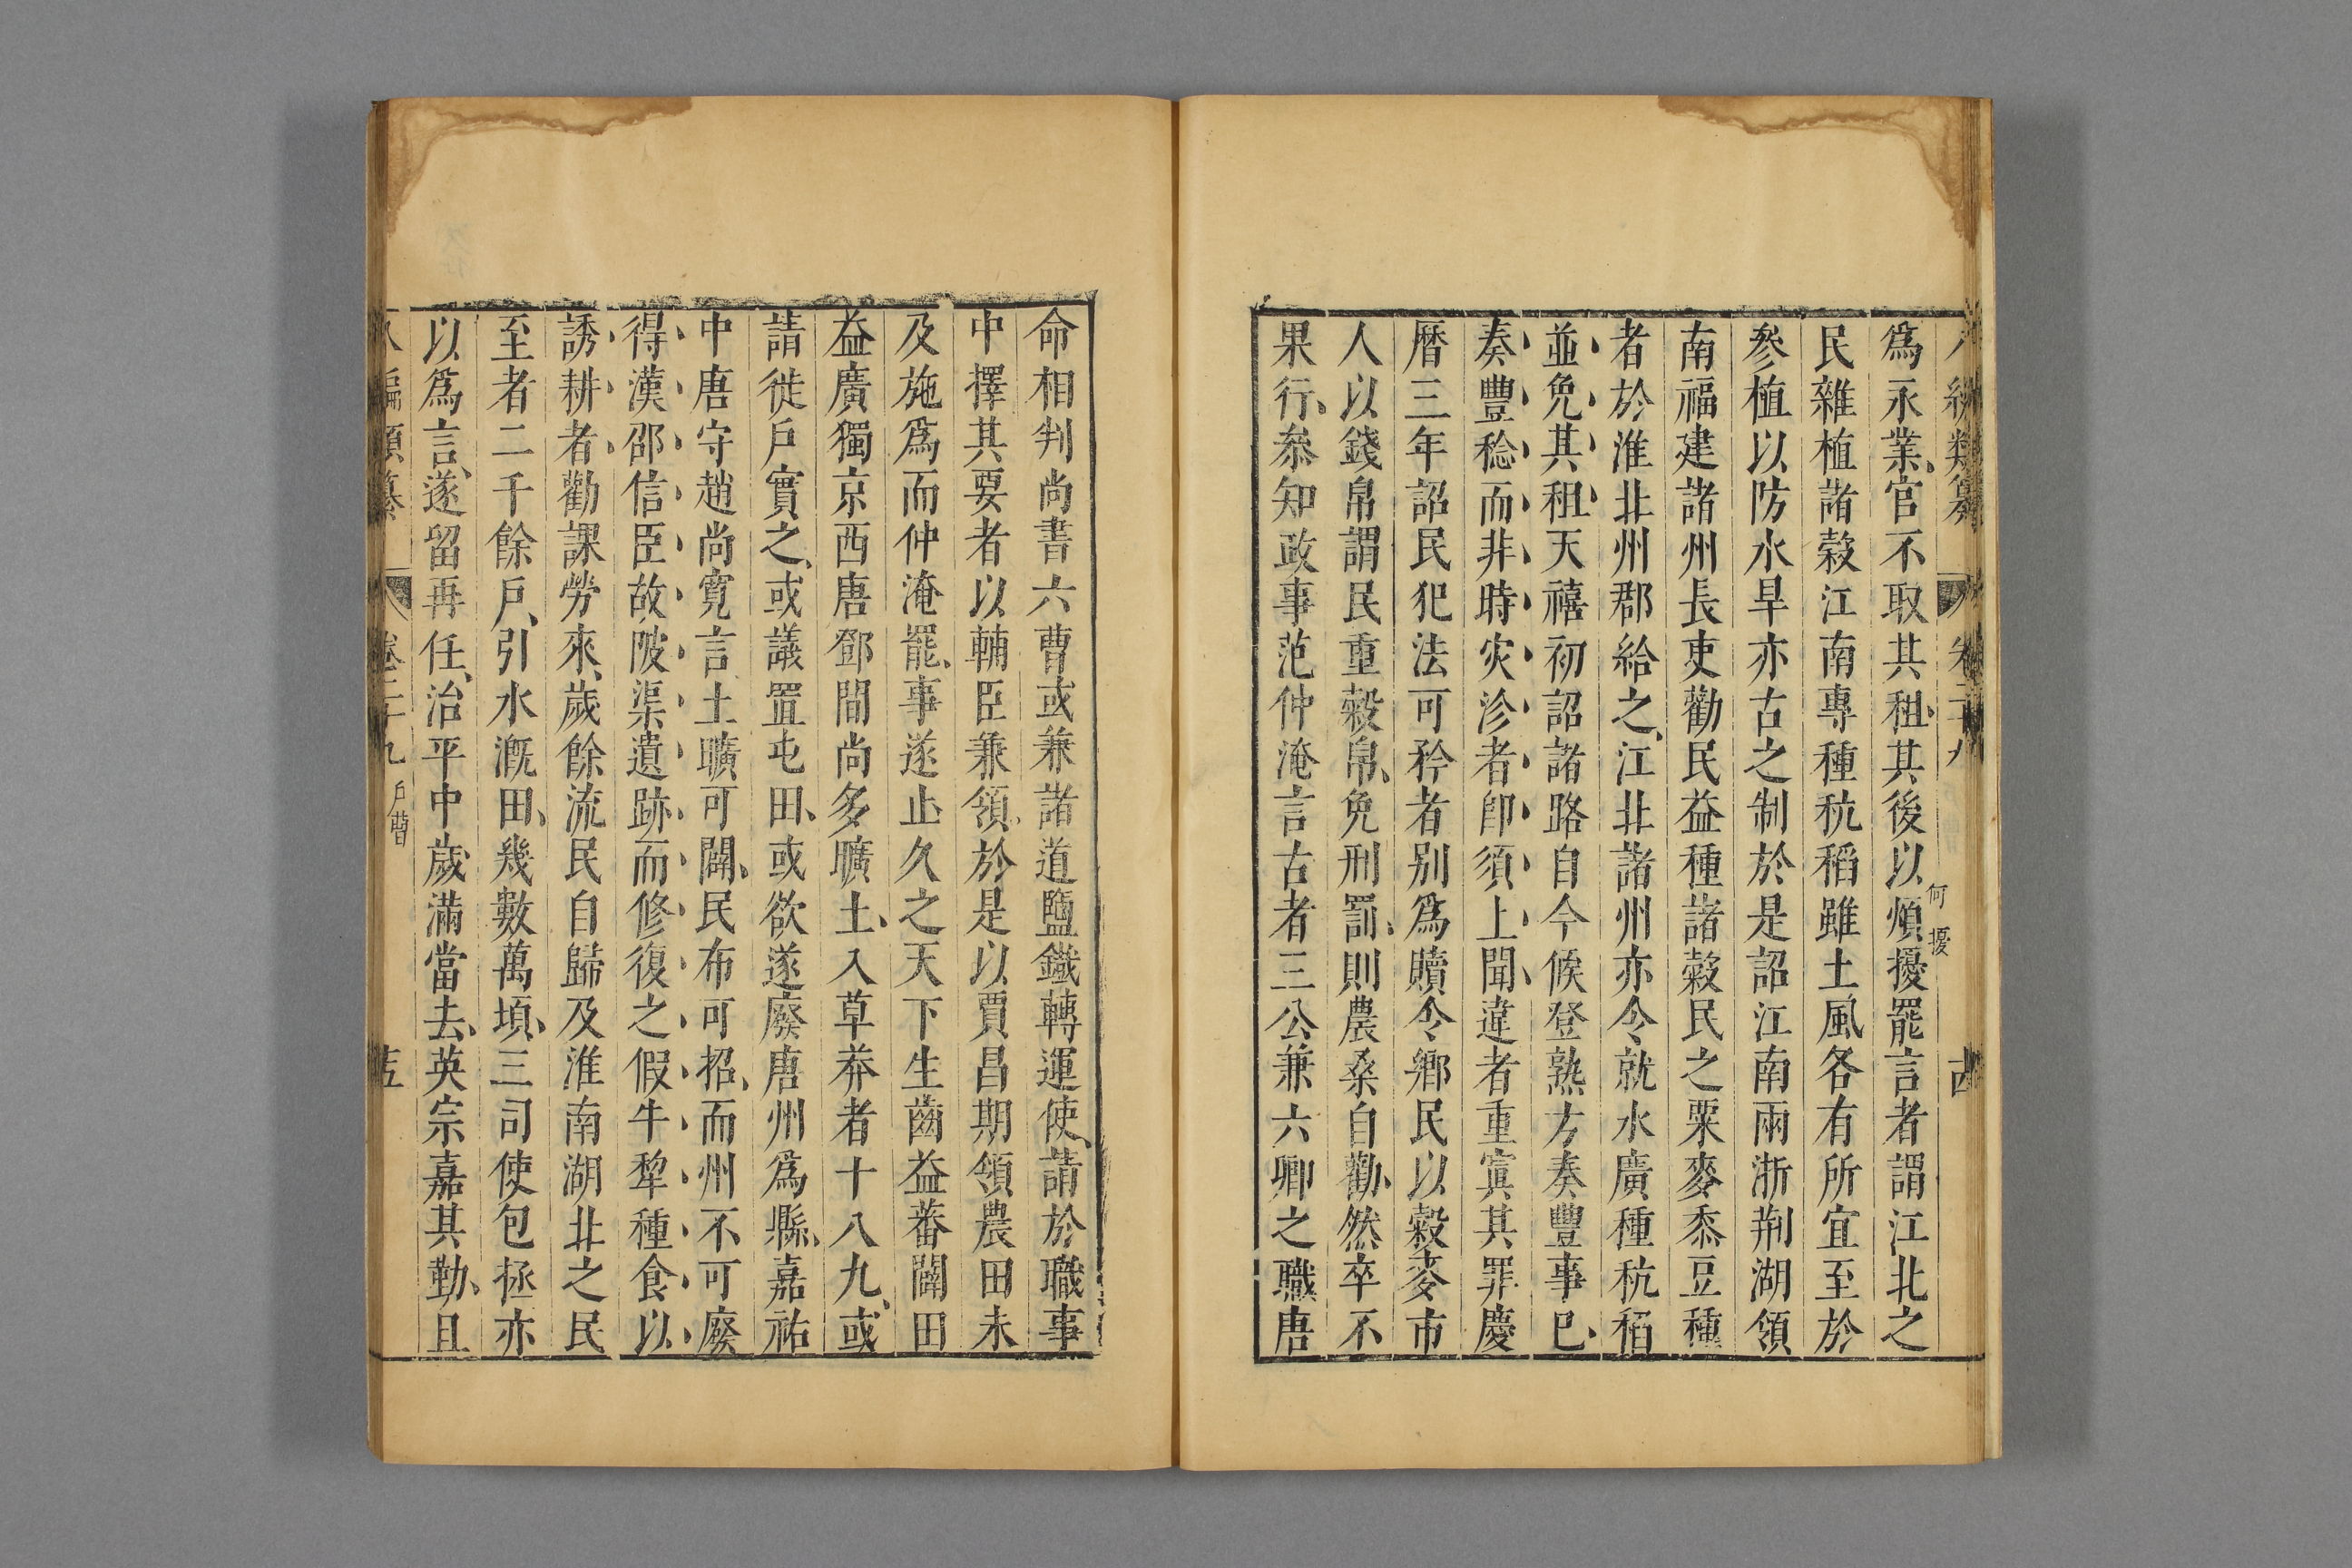 八編類纂 卷二十九 古
何擾
爲永業官不取其租其後以煩擾罷言者謂江北之
民雜植諸穀江南專種秔稻雖土風各有所宜至於
參植以防水旱亦古之制於是詔江南兩浙荆湖領
南福建諸州長吏勸民益種諸穀民之粟麥黍豆種
者於淮北州郡給之江北諸州亦令就水廣種秔稻
並免其租天禧初詔諸路自今候登熟方奏豐事巳
奏豐稔而非時灾沴者卽須上聞違者重寘其罪慶
曆三年詔民犯法可矜者别爲贖令鄉民以穀麥市
人以錢帛謂民重穀帛免刑罰則農桑自勸然卒不
果行叅知政事范仲淹言古者三公兼六卿之職唐
命相判尚書六曹或兼諸道鹽鐵轉運使請於職事
中擇其要者以輔臣兼領於是以賈昌期領農田未
及施爲而仲淹罷事遂止久之天下生齒益蕃闢田
益廣獨京西唐鄧間尚多曠土入草莽者十八九或
請徙戶實之或議置屯田或欲遂廢唐州爲縣嘉祐
中唐守趙尚寬言土曠可闢民布可招而州不可廢
得漢邵信臣故陂渠遺跡而修復之假牛犂種食以
誘耕者勸課勞來歲餘流民自歸及淮南湖北之民
至者二千餘戶引水溉田幾數萬頃三司使包拯亦
以爲言遂留再任治平中歲滿當去英宗嘉其勤且
八編類纂 卷二十九 戶曹 五